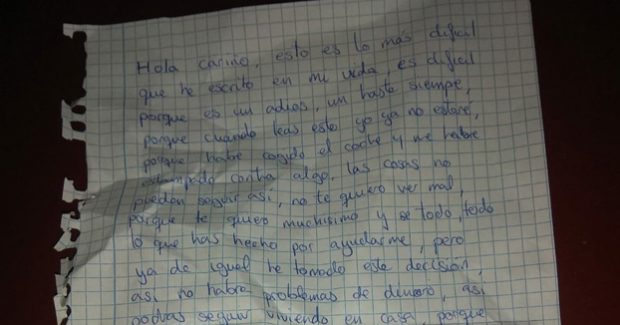 Hola cariño, esto es lo más dificil
que he escrito en mi vida, es dificil
porque es un adios, un hasta siempre,
porque cuando leas esto yo ya no estare,
porque habre cogido el coche y me habre
estampado contra algo, las cosas no
pueden seguir asi, no te quiero ver mal,
porque te quiero muchisimo y se todo, todo
lo que has hecho por ayudarme, pero
ya da igual he tomado esta decisión,
asi no habra problemas de dinero, asi
podras seguir viviendo en casa, porque